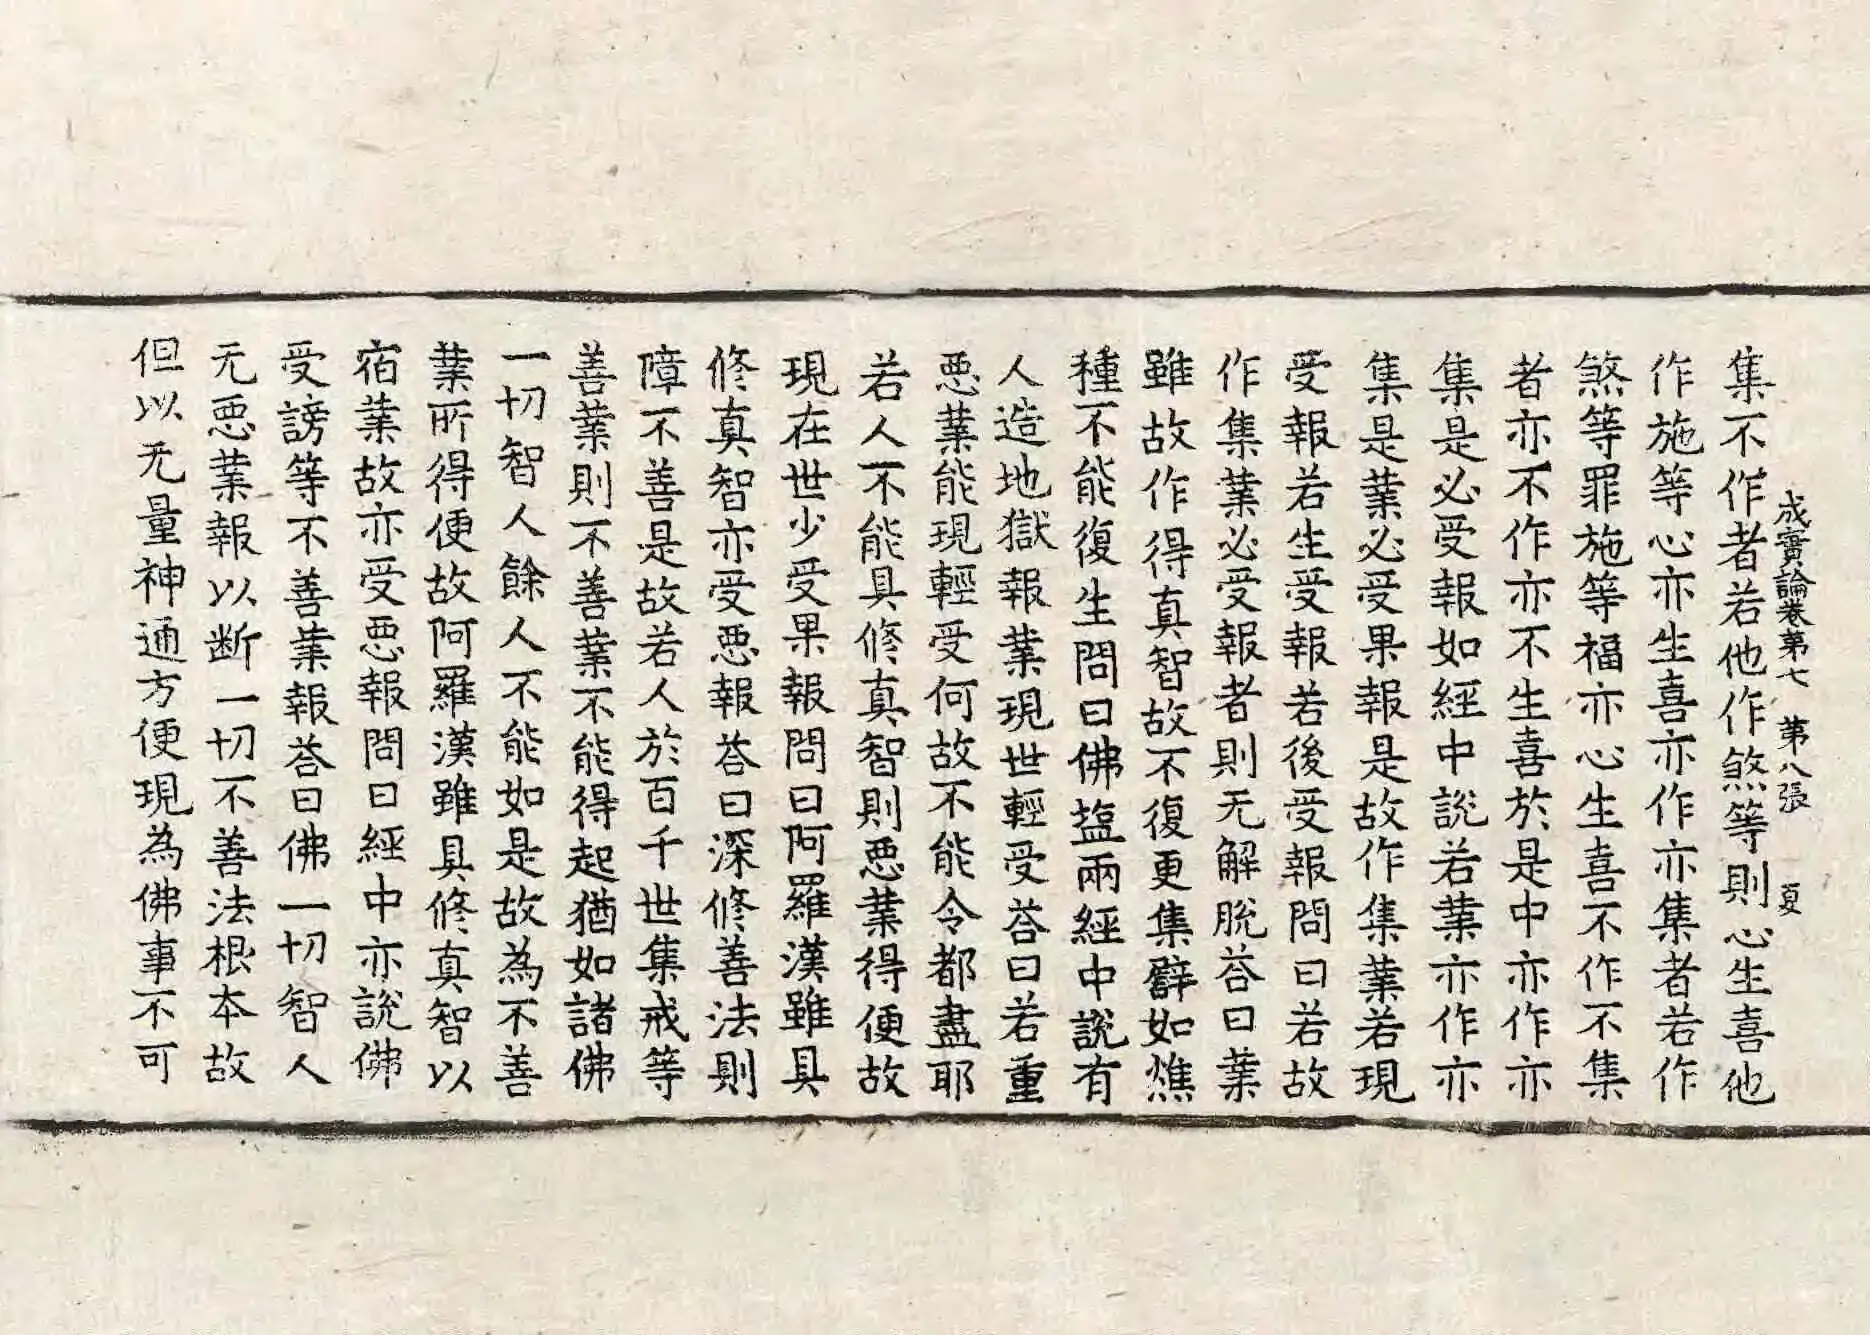 成實論卷第七　第八張　夏
集不作者若他作煞等則心生喜他
作施等心亦生喜亦作亦集者若作
煞等罪施等福亦心生喜不作不集
者亦不作亦不生喜於是中亦作亦
集是必受報如經中說若業亦作亦
集是業必受果報是故作集業若現
受報若生受報若後受報問曰若故
作集業必受報者則无解脫荅曰業
雖故作得真智故不復更集譬如燋
種不能復生問曰佛塩兩經中說有
人造地獄報業現世輕受荅曰若重
惡業能現輕受何故不能令都盡耶
若人不能具修真智則惡業得便故
現在世少受果報問曰阿羅漢雖具
修真智亦受惡報荅曰深修善法則
障不善是故若人於百千世集戒等
善業則不善業不能得起猶如諸佛
一切智人餘人不能如是故為不善
業所得便故阿羅漢雖具修真智以
宿業故亦受惡報問曰經中亦說佛
受謗等不善業報荅曰佛一切智人
无惡業報以断一切不善法根本故
但以无量神通方便現為佛事不可